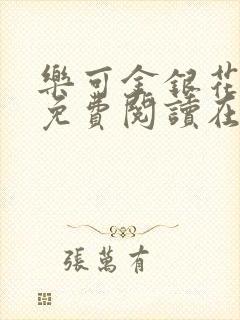 樂可金銀花
免費閱讀在
張萬有